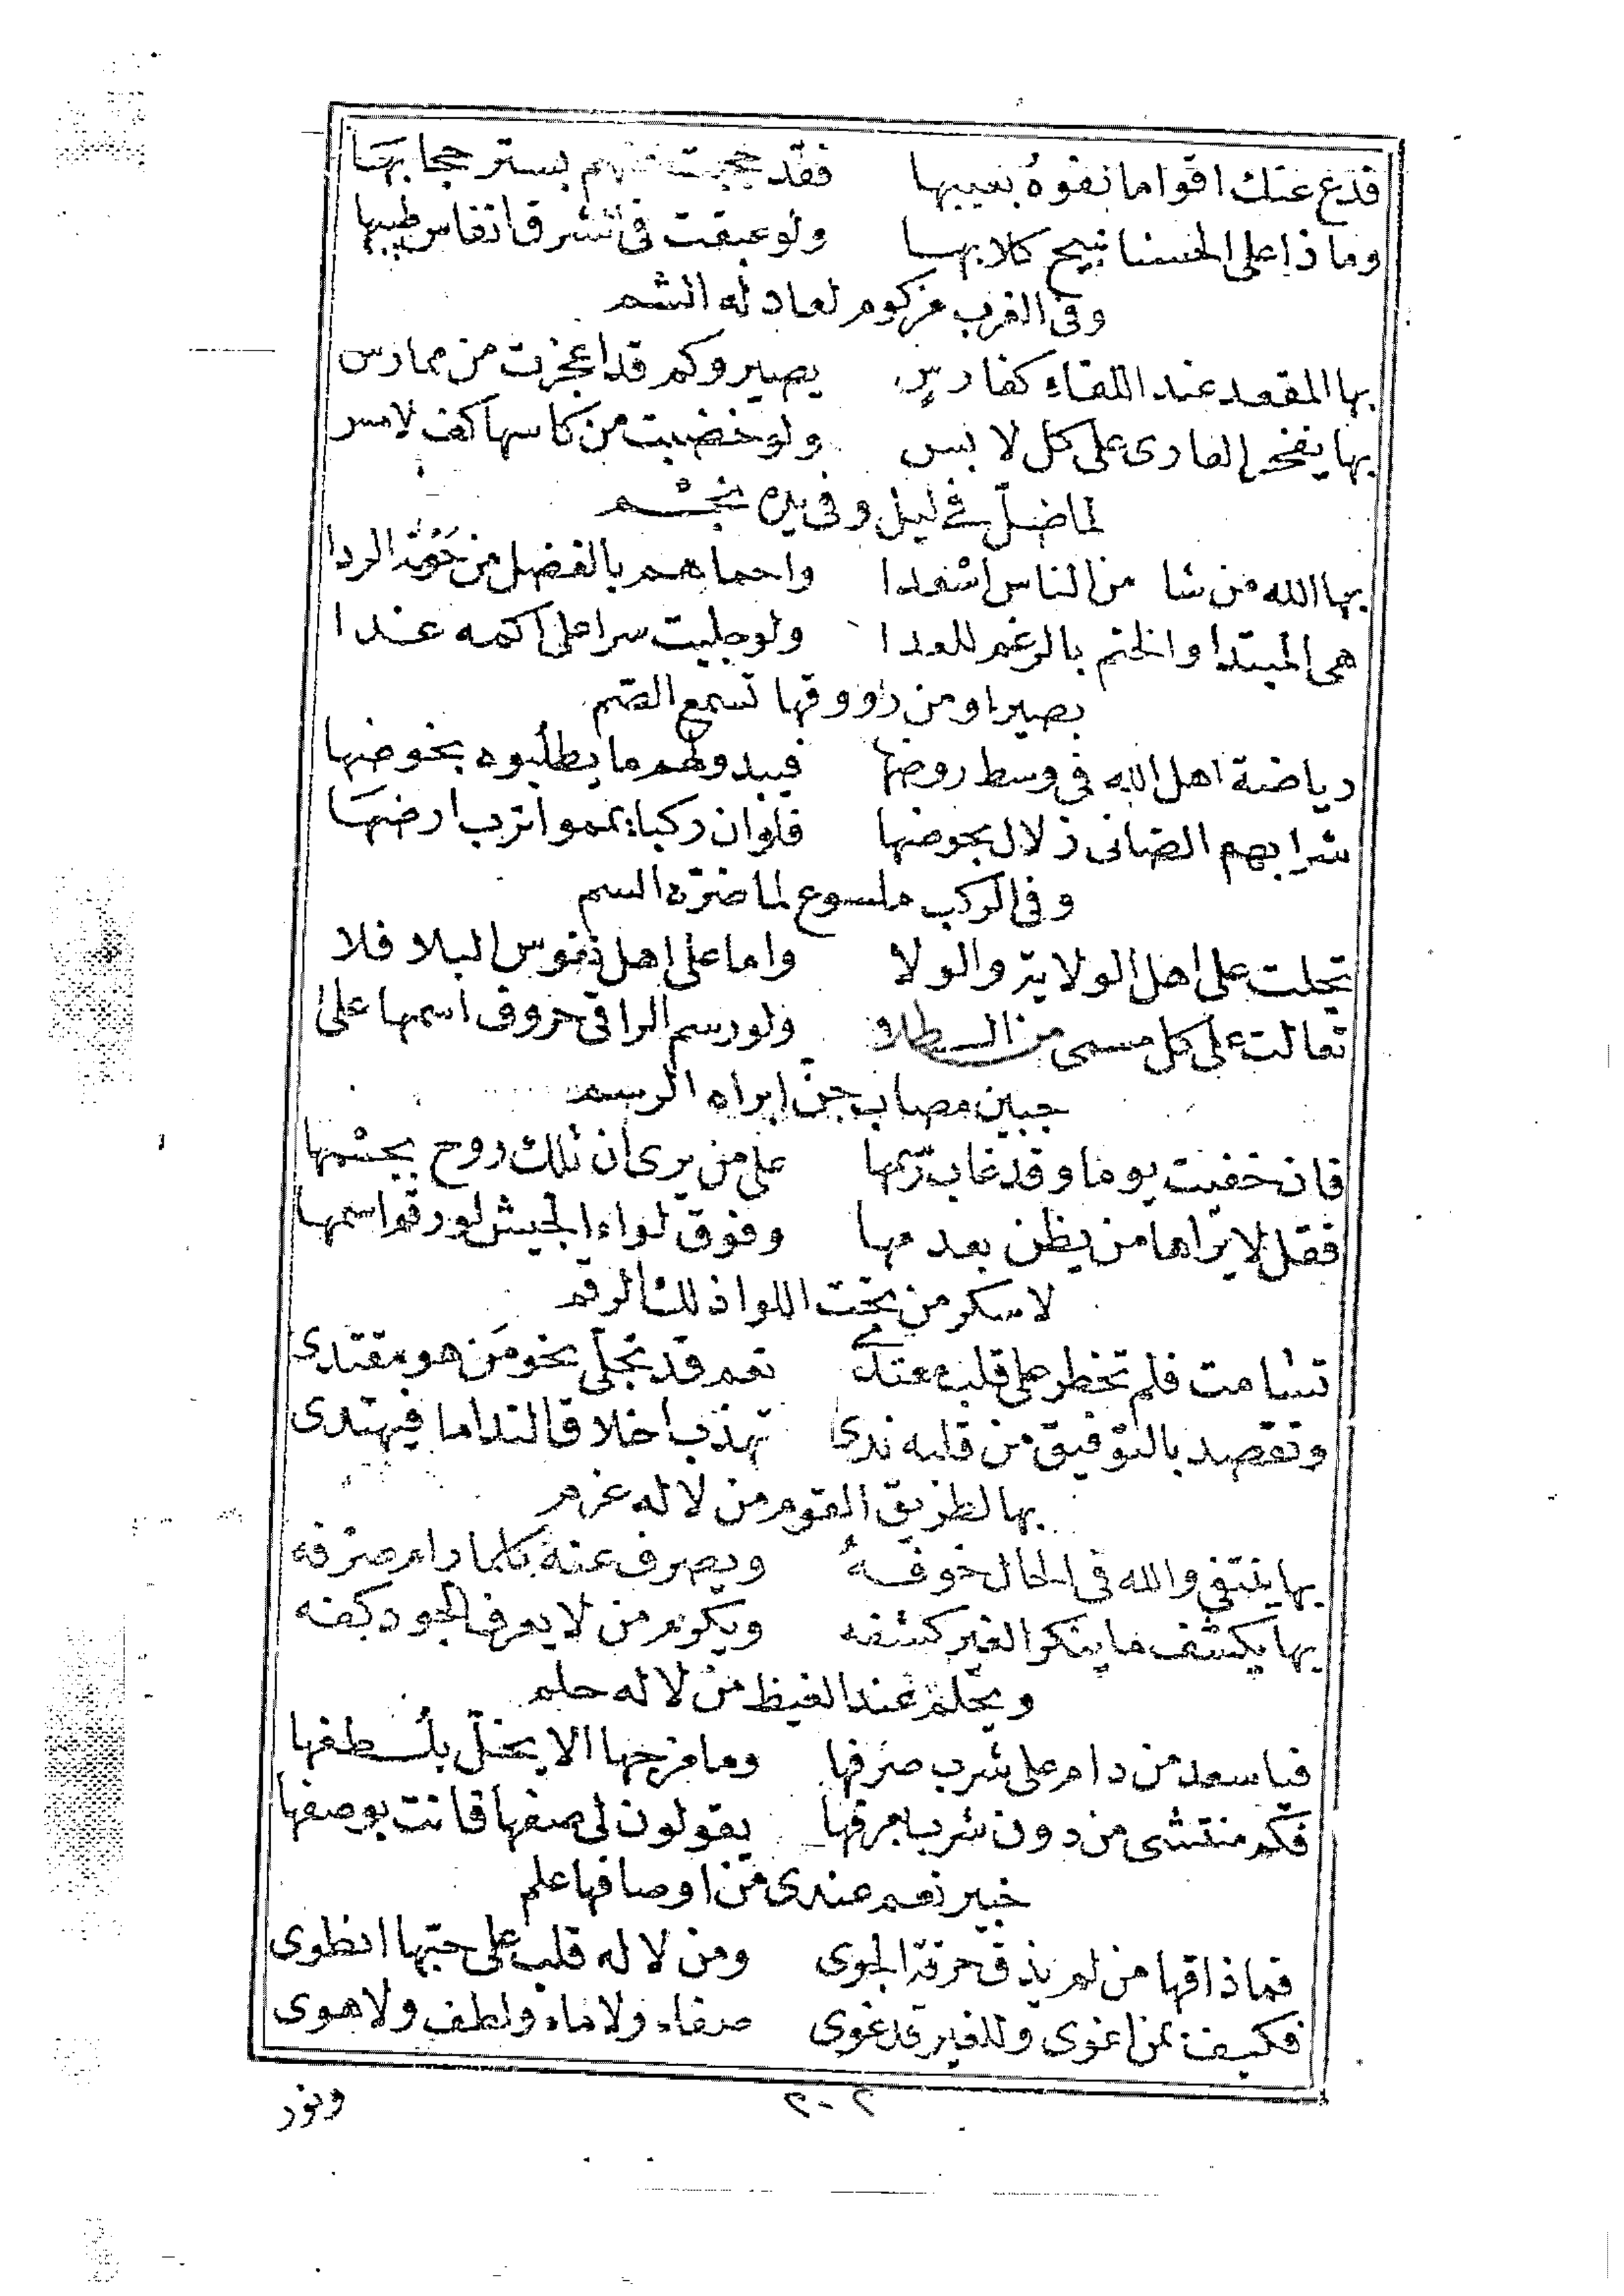 فدع عنك اقواما تفوهُ بعيبها فقد حجبت عنهم بستر حجابهَا
وماذا على الحسنا نبيح كلابهـا ولو عبقت فى الشرق انفاس طيبها
وفى الغرب مزكوم لعاد له الشم
بها المقعد عند اللقاءِ كفارسٍ يصير وكم قد اعجزت من ممارس
بها يفخر العارى على كل لابس ولو خضبت من كاسها كف لامس
لما ضلّ في ليل وفى يده نجـم
بها الله من شا من الناس اسعدا واحماهم بالفضل من حَومَة الردا
هى المبتدا والختم بالرغم للعدا ولو جليت سرا على اكمه غـدا
بصيرا ومن راووقها تسمع الصّم
رياضة اهل الله فى وسط روضها فيبدو لهم ما يطلبوه بخوضها
شرابهم الصافى زلال بحوضها فلو ان ركبا يمموا ترب ارضهَـا
وفى الركب ملسوع لما ضرّه السم
تجلت على اهل الولاية والولا واما على اهل نفوس البلا فلا
تعالت على كل مسمى من الطلا ولو رسم الراقى حروف اسمها على
جبين مصاب جنّ ابراه الرسم
فان خفيت يوما وقد غاب رسمها على من يرى ان تلك روح بجسمها
فقل لا يراها من يظن بعدمها وفوق لواء الجيش لو رقم اسمها
لاسكر من تحت اللوا ذلك الرقم
تسامت فلم تخطر على قلب معتدى نعم قد تجلّى نحو مَن هو مقتدى
وتقصد بالتوفيق من قلبه ندى تهذب اخلاق الندا ما فيهتدى
بها لطريق القوم من لا له عزم
بها ينتفى والله فى الحال خوفـهُ ويصرف عنه كلما رام صرفه
بها يكشف ما ينكر الغير كشفه ويكرم من لا يعرف الجود كفه
ويحلم عند الغيظ من لا له حلم
فيا سعد من دام على شرب صرفها وما مزجها الا يخلّ بلُـطفها
فكم منتشى من دون شرب لصرفها يقولون لى صفها فانت بوصفها
خبير نعم عندى من اوصافها علم
فما ذاقها من لم يذق حرقة الجوى ومن لا له قلب على حبّها انطوى
فكيف بمن اغوى وللغير قد غوى صفاء ولا ماء ولطف ولا هوى
ونور